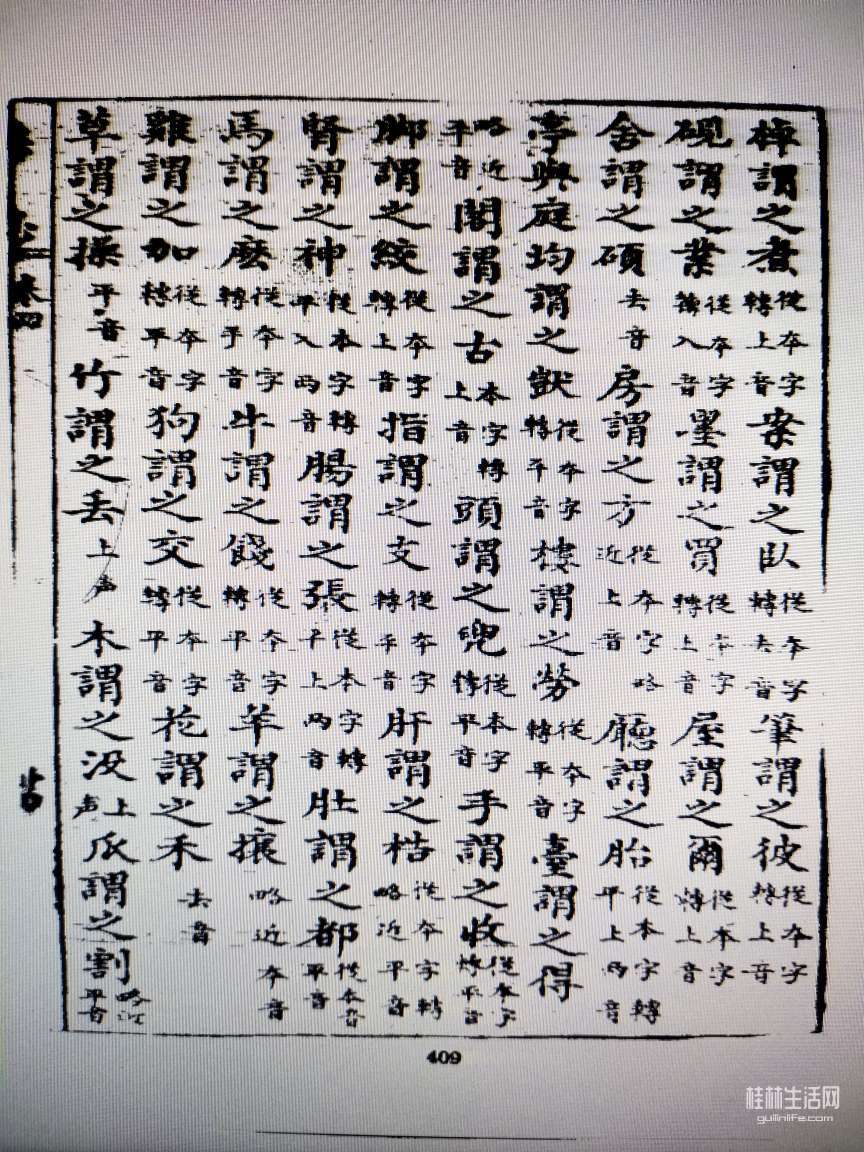 梅謂之煮從本字轉上音案謂之臥從本字轉去音筆謂之彼從本字轉上音
硯謂之業從本字轉入音墨謂之買從本字轉上音屋謂之爾從本字轉上音
舍謂之碩去音房謂之方從本字略近上音廳謂之胎從本字轉平上兩音
亭與庭均謂之從本字轉平音樓謂之勞從本字轉平音臺謂之得
略近平音閣謂之古本字轉上音頭謂之兜從本字轉平音手謂之收從本字轉平音
腳謂之絞從本字轉上音指謂之支從本字轉平音肝謂之梏從本字轉略近平音
腎謂之神從本字轉平入兩音腸謂之張從本字轉平上兩音肚謂之都從本音平音
馬謂之麽從本字轉平音牛謂之餞從本字轉平音羊謂之攘略近本音
雞謂之加從本字轉平音狗謂之交從本字轉平音花謂之禾去音
草謂之操平音竹謂之丟上声木謂之没上声瓜謂之割略近平音
卷四
409
桂林生活网
guilinlife.com